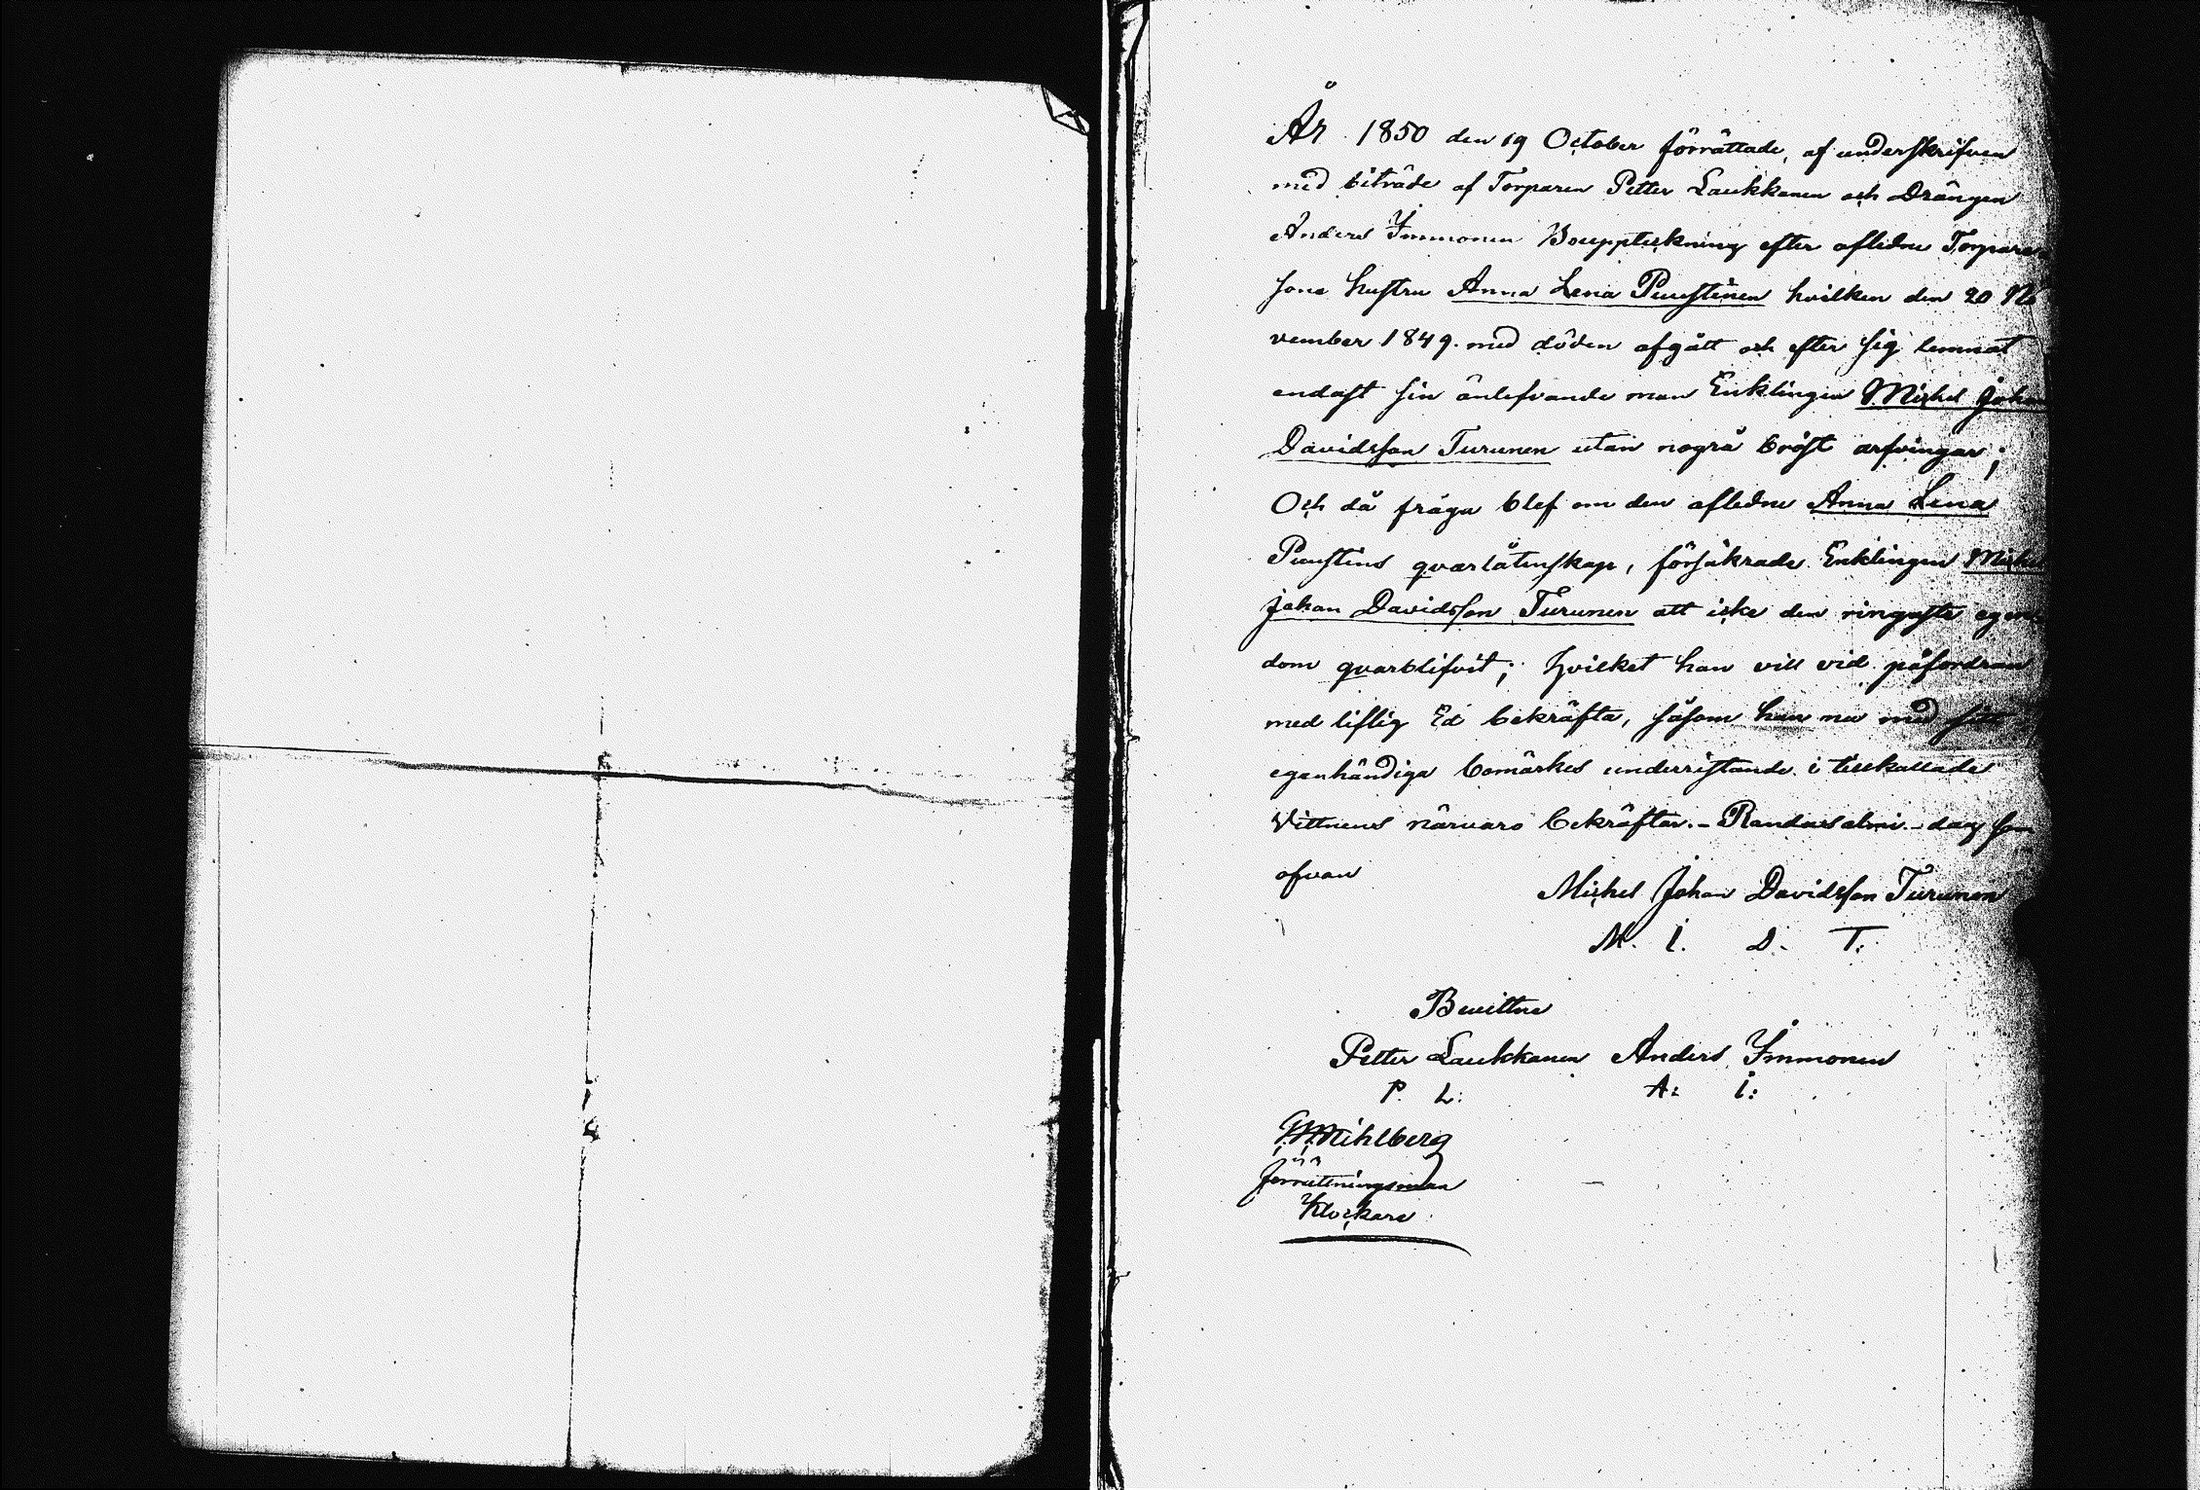 År 1850 den 19 October förrättade, af underskrifven
med biträde af Torparen Petter Laukkanen och Drängen
Anders Immonen Bouppteckning efter aflidne Torpare
sons hustru Anna Lena Puustinen hvilken den 20 No
vember 1849. med döden afgått och efter sig lemnat
endast sin änlefvande man Enklingen Michel Johan
Davidsson Turunen utan några bröst arfvingar;
Och då fråga blef om den aflidne Anna Lena
Puustins qvarlåtenskap, försäkrade Enklingen Michel
Johan Davidsson Turunen att icke den ringaste egen
dom qvarblifvit; hvilket han vill vid påfordran
med liflig Ed bekräfta, såsom han nu med sitt
egenhändiga bomärkes underristande i tillkallade
Vittnens närvaro bekräftar. - Randasalmi. - dag som
ofvan
Michel Johan Davidsson Turunen
M. I. D. T.
Bevittna
Petter Laukkanen Anders Immonen
P. L: A: I:
Mihlberg
förrättningsman
Klockare